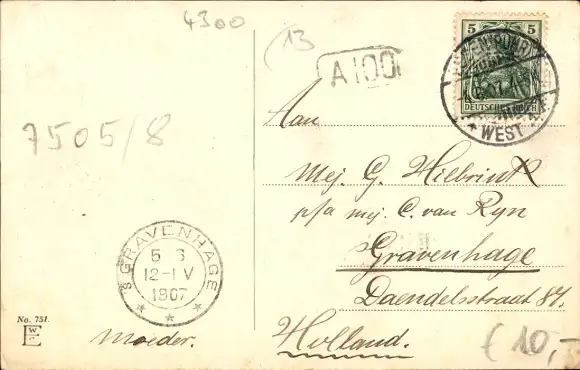 4300
13
A100
5 5
DEUTSCHES REICH
WEST
7505/8
Aan
Mej. G. Hilbrink
p/a mej. C. van Ryn
Gravenhage
Daendelsstraat 81.
Holland.
'SGRAVENHAGE
5 6
12-1 V
1907
No. 751.
Moeder.
€ 10,-